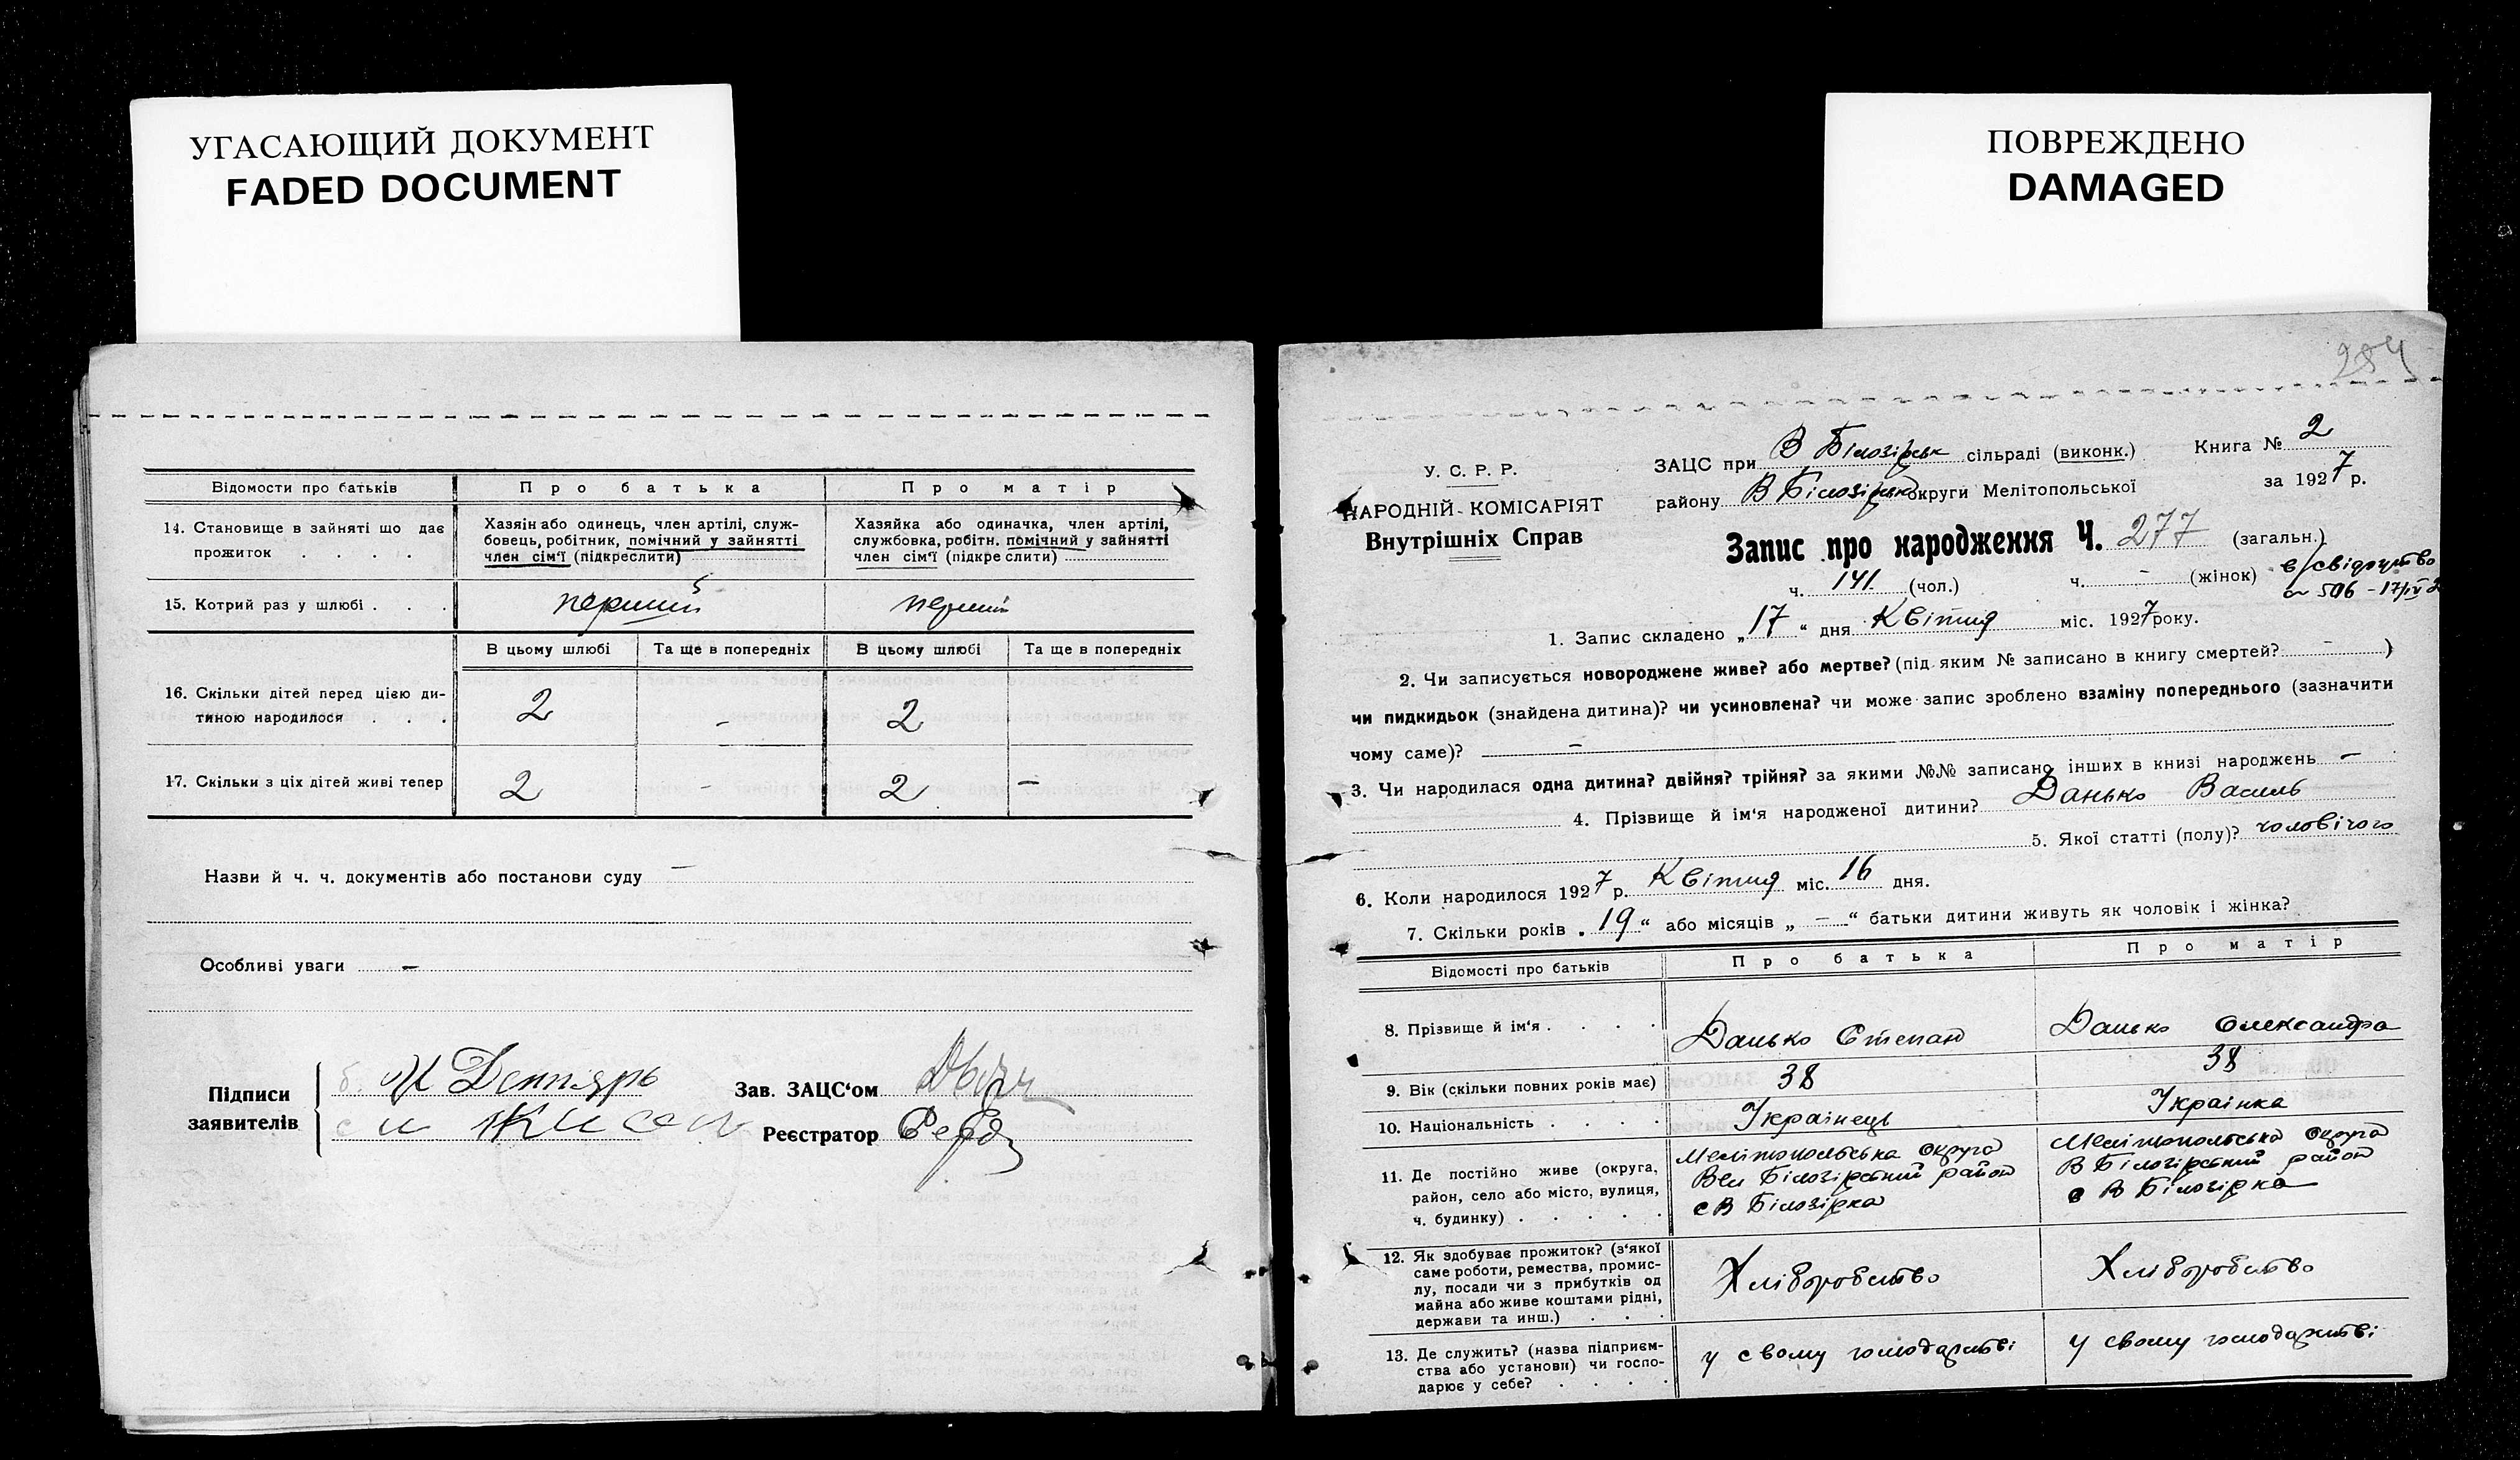 УГАСАЮЩИЙ ДОКУМЕНТ
FADED DOCUMENT
Відомости про батьків
Про батька
Про матір
14. Становище в зайняті що дає прожиток . . . .
Хазяїн або одинець, член артілі, служ-
бовець, робітник, помічний у зайнятті
член сім'ї (підкреслити)
Хазяйка або одиначка, член артілі,
службовка, робітн. помічний у зайнятті
член сім'ї (підкреслити)
15. Котрий раз у шлюбі . . .
перший
перший
В цьому шлюбі
Та ще в попередніх
В цьому шлюбі
Та ще в попередніх
16. Скільки дітей перед цією ди-
тиною народилося . . .
2
-
2
17. Скільки з ціх дітей живі тепер
2
-
2
-
Назви й ч. ч. документів або постанови суду -
Особливі уваги -
Підписи
заявителів
Зав. ЗАЦС'ом
Реєстратор
ПОВРЕЖДЕНО
DAMAGED
284
У. С. Р. Р.
НАРОДНІЙ КОМІСАРІЯТ
Внутрішніх Справ
ЗАЦС при В Білозірськ сільраді (виконк.)
Книга № 2
району В Білозірськ округи Мелітопольської
за 1927 р.
Запис про народження Ч. 277 (загальн.)
ч. 141 (чол.) ч. - (жінок)
в/свідоцтво
506 - 17/IV 2
1. Запис складено „17“ дня Квітня міс. 1927 року.
2. Чи записується новороджене живе? або мертве? (під яким № записано в книгу смертей? - )
чи пидкидьок (знайдена дитина)? чи усиновлена? чи може запис зроблено взаміну попереднього (зазначити
чому саме)? -
3. Чи народилася одна дитина? двійня? трійня? за якими №№ записано інших в книзі народжень -
4. Прізвище й ім'я народженої дитини? Данько Василь
5. Якої статті (полу)? чоловічого
6. Коли народилося 1927 р. Квітня міс. 16 дня.
7. Скільки років „19“ або місяців „-“ батьки дитини живуть як чоловік і жінка?
Відомості про батьків
Про батька
Про матір
8. Прізвище й ім'я . . . .
Данько Степан
Данько Олександра
9. Вік (скільки повних років має)
38
38
10. Національність . . . .
Українець
Українка
11. Де постійно живе (округа,
район, село або місто, вулиця,
ч. будинку) . . . . .
Мелітопольська округа
Вел Білозірський район
с В Білозірка
Мелітопольська округа
В Білозірський район
с В Білозірка
12. Як здобуває прожиток? (з'якої
саме роботи, ремества, промис-
лу, посади чи з прибутків од
майна або живе коштами рідні,
держави та инш.) . . .
Хліборобство
Хліборобство
13. Де служить? (назва підприєм-
ства або установи) чи госпо-
дарює у себе? . . . .
у свому господарстві
у свому господарстві